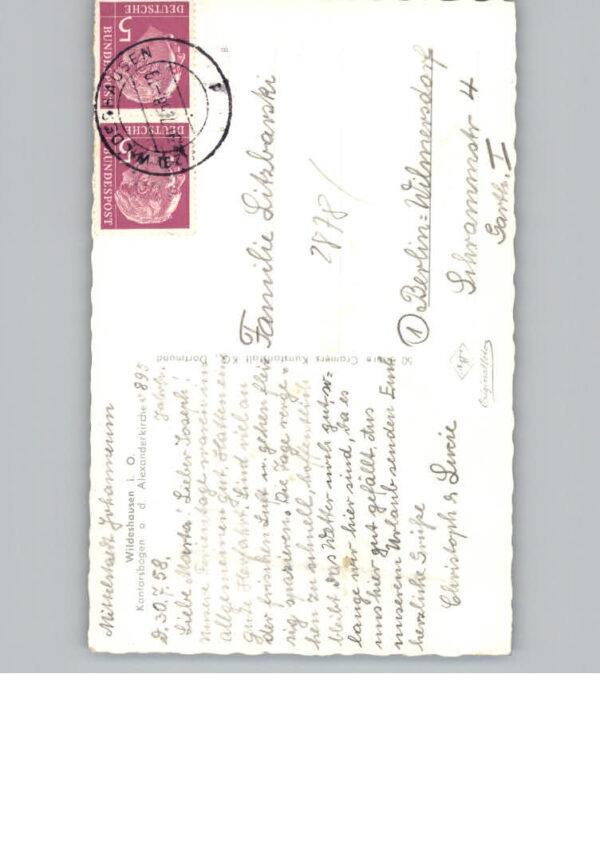 Mittelstadt Johanneum
Wildeshausen i. O.
Kantorsbogen a. d. Alexanderkirche
895
D. 30.7.58.
Liebe Marta! Lieber Joseph!
Unsere Ferientage waren im
Allgemeinen gut. Hatten eine
gute Herfahrt. Sind viel an
der frischen Luft u. gehen
spazieren. Die Tage verge-
hen zu schnell, hoffentlich
bleibt das Wetter noch gut so-
lange wir hier sind, da es
uns hier gut gefällt. Aus
unserem Urlaub senden Euch
herzliche Grüße
Christoph & Lucie
Cramers Kunstanstalt KG., Dortmund
Agfa
Originalfoto
DEUTSCHE
BUNDESPOST
5
DEUTSCHE
BUNDESPOST
5
WILDESHAUSEN
Familie Litzbarski
2878/
(1) Berlin=Wilmersdorf
Schrammstr 4
Garth. I